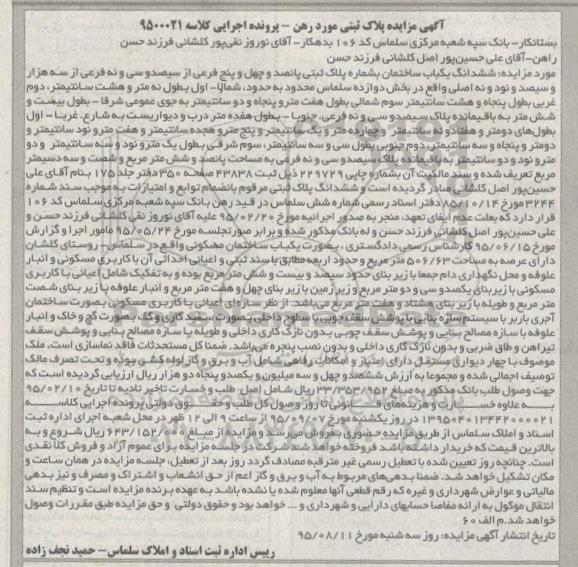 آگهی مزایده پلاک ثبتی مورد رهن - پرونده اجرایی کلاسه ۹۵۰۰۰۲۱
بستانکار- بانک سپه شعبه مرکزی سلماس کد ۱۰۶ بدهکار- آقای نوروز نقی‌پور کلشانی فرزند حسن
راهن-آقای علی حسین‌پور اصل کلشانی فرزند حسن
مورد مزایده: ششدانگ یکباب ساختمان بشماره پلاک ثبتی پانصد و چهل و پنج فرعی از سیصدو سی و نه فرعی از سه هزار
و سیصد و نود و نه اصلی واقع در بخش دوازده سلماس محدود به حدود، شمالا- اول بطول نه متر و هشت سانتیمتر، دوم
غربی بطول پنجاه و هشت سانتیمتر سوم شمالی بطول هفت مترو پنجاه و دو سانتیمتر به جوی عمومی شرقا - بطول بیست و
شش متر به باقیمانده پلاک سیصدو سی و نه فرعی، جنوبا - بطول هفده متر درب و دیواریست به شارع. غربا - اول
بطول‌های دومتر و هفتادو نه سانتیمتر و چهارده متر و یک سانتیمتر و پنج مترو هجده سانتیمتر و هفت مترو نود سانتیمتر و
دومتر و پنجاه و سه سانتیمتر، دوم جنوبی بطول سی و سه سانتیمتر، سوم شرقی بطول یک مترو نود و سه سانتیمتر و دو
مترو نود و دو سانتیمتر به باقیمانده پلاک سیصدو سی و نه فرعی به مساحت پانصد و شش متر مربع و شصت و سه دسیمتر
مربع تعریف شده و سند مالکیت آن بشماره چاپی ۲۲۹۷۲۹ ذیل ثبت ۴۳۸۳۸ صفحه ۳۵۰ دفتر جلد ۱۷۵ بنام آقای علی
حسین‌پور اصل کلشانی صادر گردیده است و ششدانگ پلاک ثبتی مرقوم بانضمام توابع و امتیازات به موجب سند شماره
۳۲۴۴ مورخ ۸۵/۱۰/۱۴ دفتر اسناد رسمی شماره شش سلماس در قید رهن بانک سپه شعبه مرکزی سلماس کد ۱۰۶
قرار دارد که بعلت عدم ایفای تعهد، منجر به صدور اجرائیه مورخ ۹۵/۰۲/۲۰ علیه آقای نوروز نقی کلشانی فرزند حسن و
علی حسین‌پور اصل کلشانی فرزند حسن و له بانک مذکور شده و برابر صورتجلسه مورخ ۹۵/۰۵/۲۴ مامور اجرا و گزارش
مورخ ۹۵/۰۶/۱۵ کارشناس رسمی دادگستری ، بصورت یکباب ساختمان مسکونی واقع در سلماس- روستای کلشان
دارای عرصه به مساحت ۵۰۶/۶۳ متر مربع و حدود اربعه مطابق با سند ثبتی و اعیانی احداثی آن با کاربری مسکونی و انبار
علوفه و محل نگهداری دام جمعا با زیر بنای حدود سیصد و بیست و شش متر مربع بوده و به تفکیک شامل اعیانی با کاربری
مسکونی با زیربنای یکصدو سی و دو متر مربع و زیر زمین با زیر بنای چهل و هفت متر مربع و انبار علوفه با زیر بنای شصت
متر مربع و طویله با زیر بنای هشتاد و هفت متر مربع می‌باشد. از نظر سازه‌ای اعیانی با کاربری مسکونی بصورت ساختمان
آجری باربر با سیستم سازه بنایی با پوشش سقف چوبی با سطوح داخلی بصورت سفید کاری و کف بصورت گچ و خاک و انبار
علوفه با سازه مصالح بنایی و پوشش سقف چوبی بدون نازک کاری داخلی و طویله با سازه مصالح بنایی و پوشش سقف
تیرآهن و طاق ضربی و بدون نازک کاری داخلی و بدون نصب پنجره می‌باشد. ضمنا کل مستحدثات فاقد نماسازی است. ملک
موصوف با چهار دیواری مستقل دارای امتیاز و امکانات رفاهی شامل آب و برق و گاز لوله کشی بوده و تحت تصرف مالک
توصیف اجمالی شده و مجموعا به ارزش ششصدو چهل و سه میلیون و یکصدو پنجاه دو هزار ریال ارزیابی گردیده است که
جهت وصول طلب بانک مذکور به مبلغ ۳۳/۳۵۳/۹۵۲ ریال شامل اصل طلب و خسارت تاخیر تادیه تا تاریخ ۹۵/۰۲/۱۰
به علاوه خسارت و هزینه‌های قانونی تا روز وصول کل طلب و حقوق دولتی پرونده اجرایی کلاسه
۱۳۹۵۰۴۰۱۳۴۴۲۰۰۰۰۲۱ در روز یکشنبه مورخ ۹۵/۰۹/۰۷ از ساعت ۹ الی ۱۲ ظهر در محل شعبه اجرای اداره ثبت
اسناد و املاک سلماس از طریق مزایده حضوری بفروش می‌رسد و مزایده از مبلغ ۶۴۳/۱۵۲/۰۰۰ ریال شروع و به
بالاترین قیمت که خریدار داشته باشد فروخته خواهد شد شرکت در جلسه مزایده برای عموم آزاد و فروش کلا نقدی
است. چنانچه روز تعیین شده با تعطیل رسمی غیر مترقبه مصادف گردد روز بعد از تعطیل، جلسه مزایده در همان ساعت و
مکان تشکیل خواهد شد. ضمنا بدهی‌های مربوط به آب و برق و گاز اعم از حق انشعاب و اشتراک و مصرف و نیز بدهی
مالیاتی و عوارض شهرداری و غیره که رقم قطعی آنها معلوم شده یا نشده باشد به عهده برنده مزایده است و تنظیم سند
انتقال موکول به ارائه مفاصا حسابهای دارایی و شهرداری و ... خواهد بود و حقوق دولتی و حق مزایده طبق مقررات وصول
خواهد شد.م الف ۶۰
تاریخ انتشار آگهی مزایده: روز سه شنبه مورخ ۹۵/۰۸/۱۱
رییس اداره ثبت اسناد و املاک سلماس- حمید نجف زاده